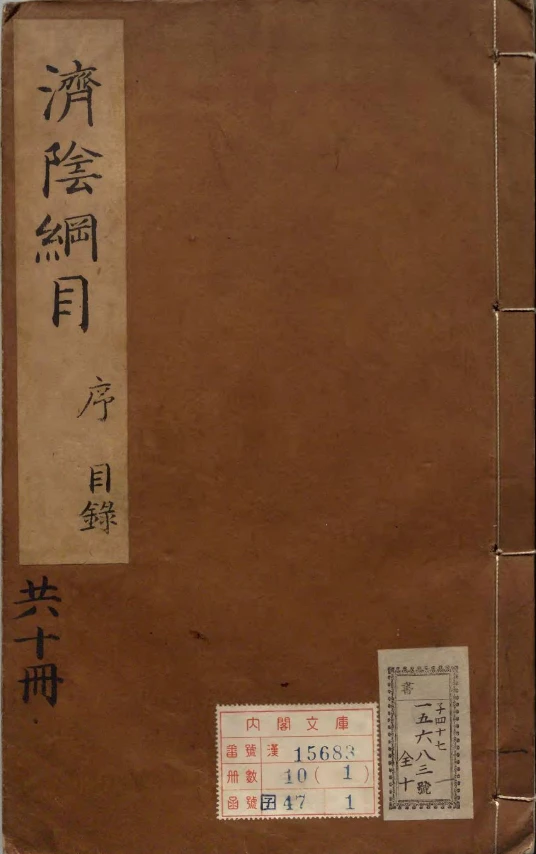 濟陰綱目
序
目錄
共十冊
內閣文庫
番號 漢 15683
冊數 10 (1)
函號 子 47 1
書
子四十七
一五六八三號
全十
一